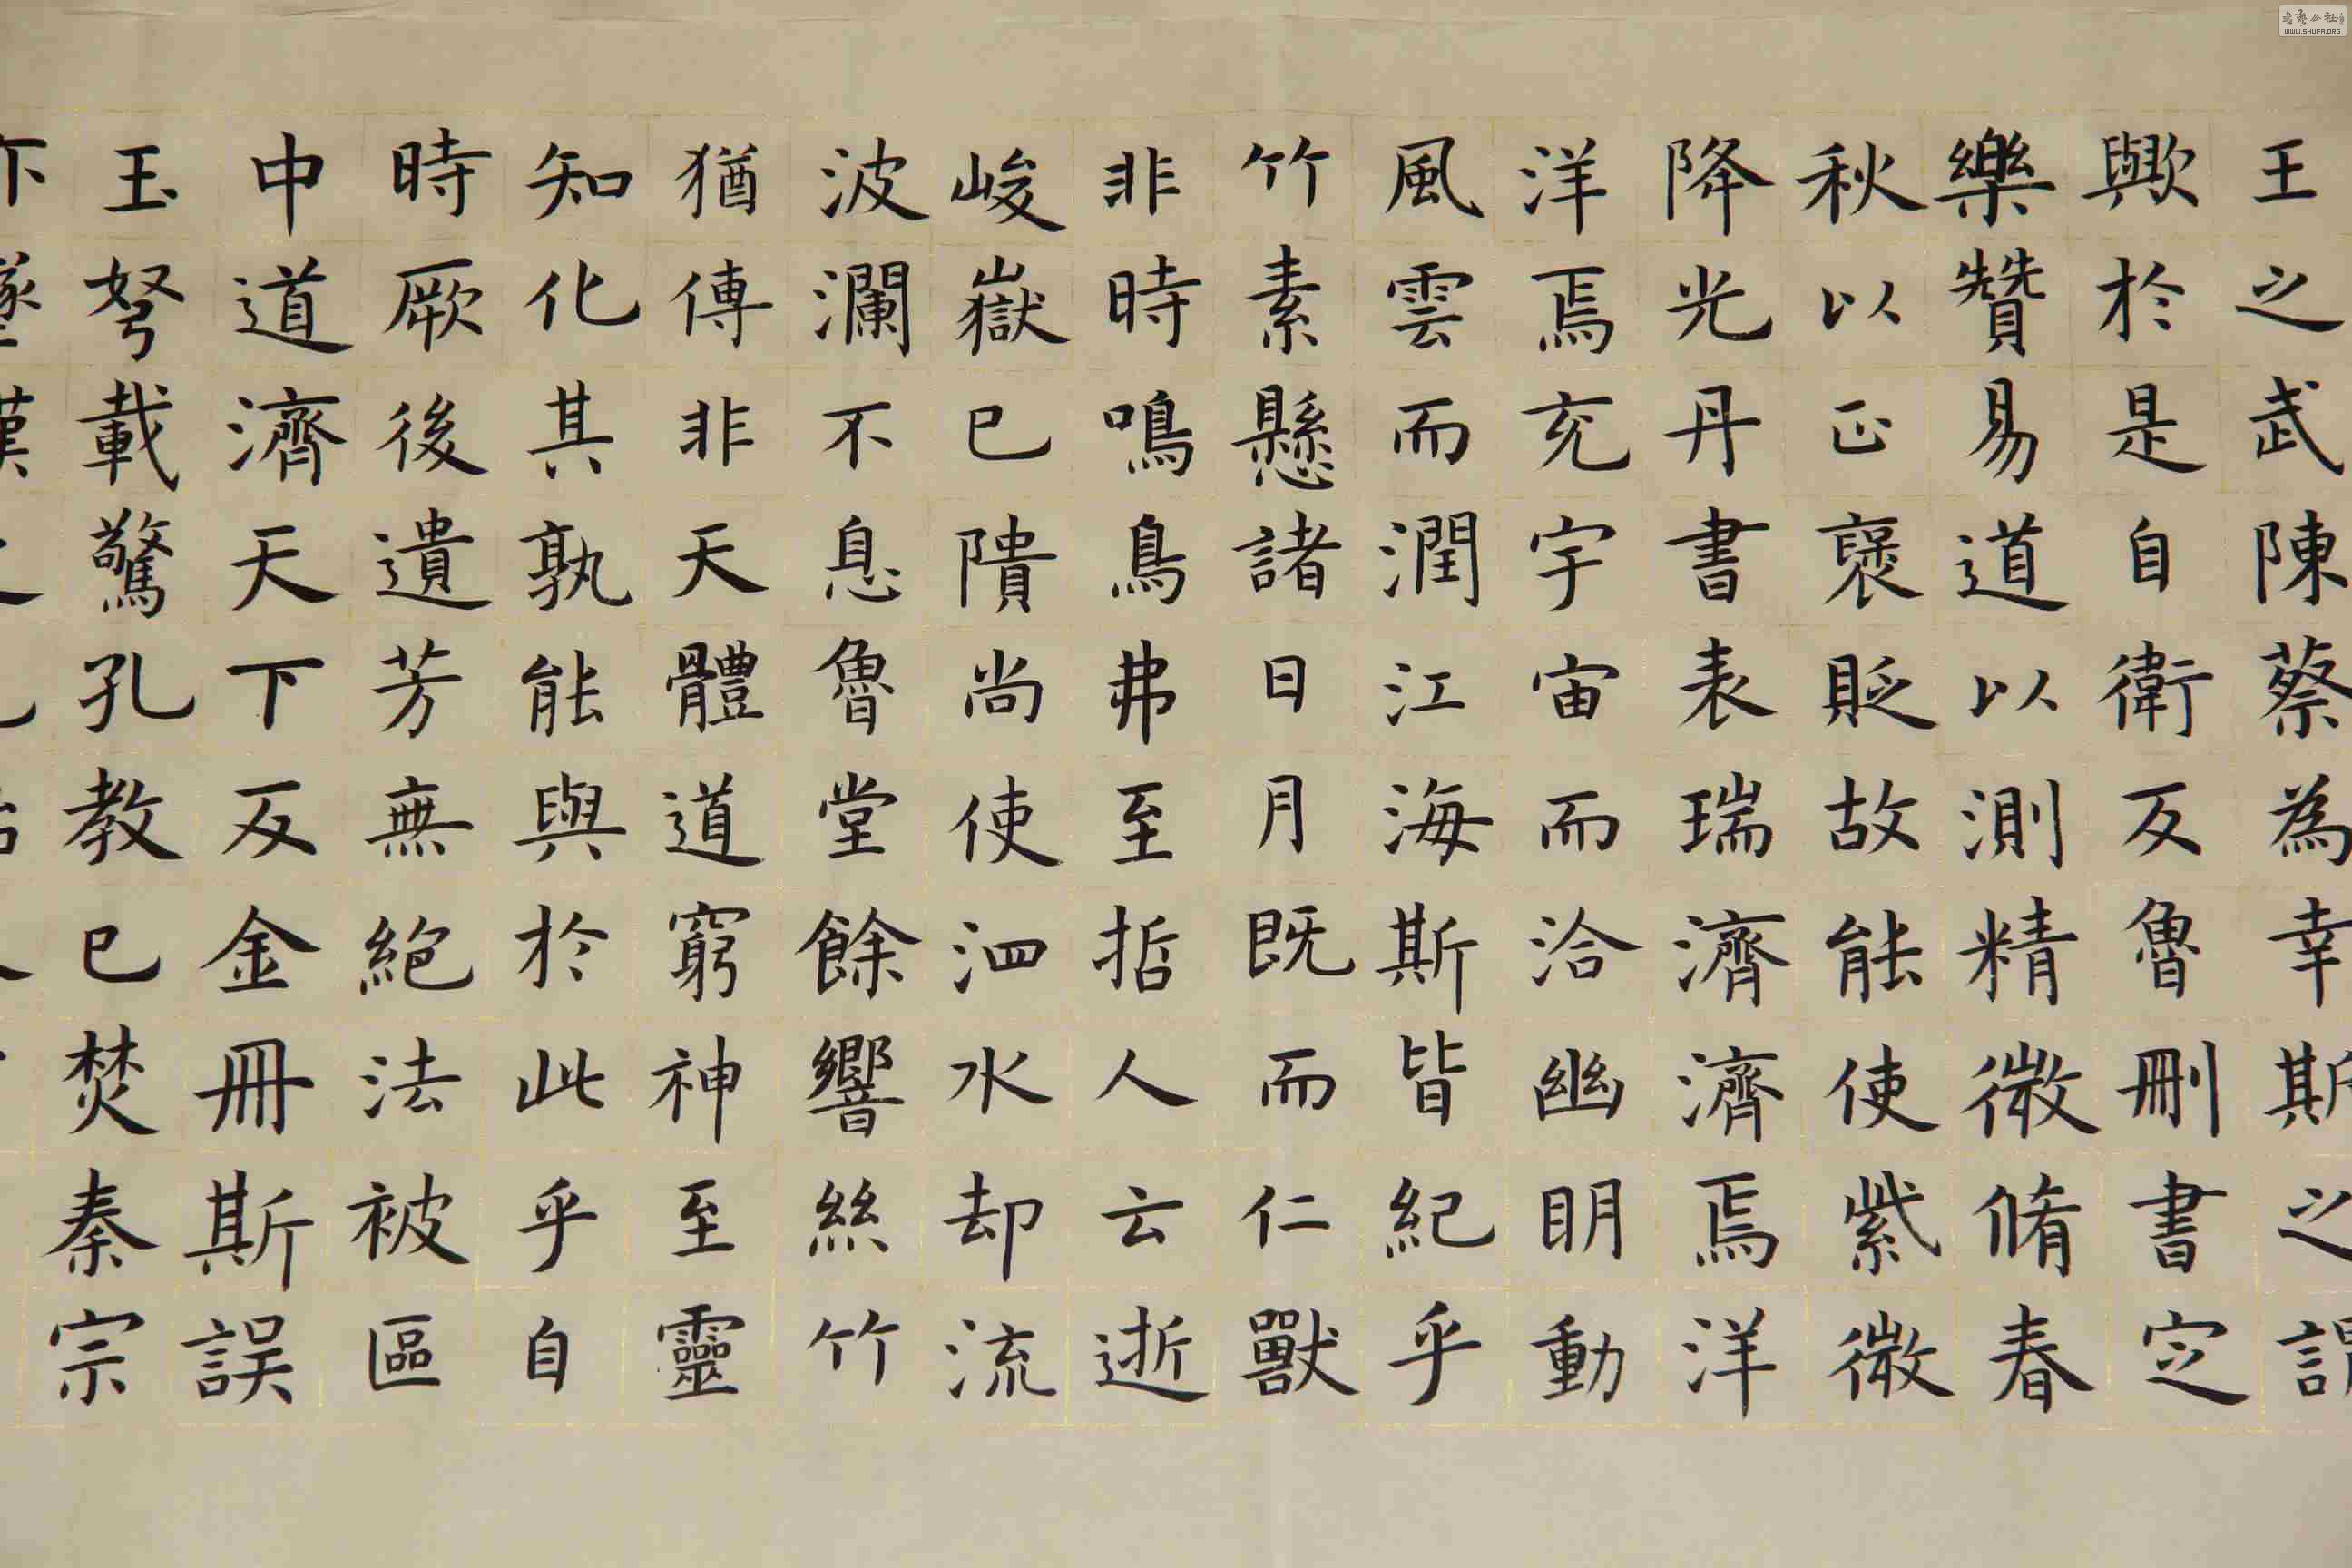 王之武陳蔡為幸斯之謂
歟於是自衛反魯刪書定
樂贊易道以測精微脩春
秋以正褒貶故能使紫微
降光丹書表瑞濟濟焉洋
洋焉充宇宙而洽幽明動
風雲而潤江海斯皆紀乎
竹素懸諸日月既而仁獸
非時鳴鳥弗至哲人云逝
峻嶽已隤尚使泗水却流
波瀾不息魯堂餘響絲竹
猶傳非天體道窮神至靈
知化其孰能與於此乎自
時厥後遺芳無絕法被區
中道濟天下及金冊斯誤
玉弩載驚孔教已焚秦宗
WWW.SHUFA.ORG